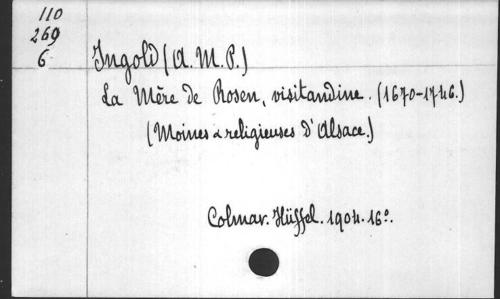 110
269
6
Ingold (A. M. P.)
La Mère de Rosen, visitandine. (1670-1746.)
(Moines & religieuses d'Alsace.)
Colmar. Hüffel. 1904. 16°.